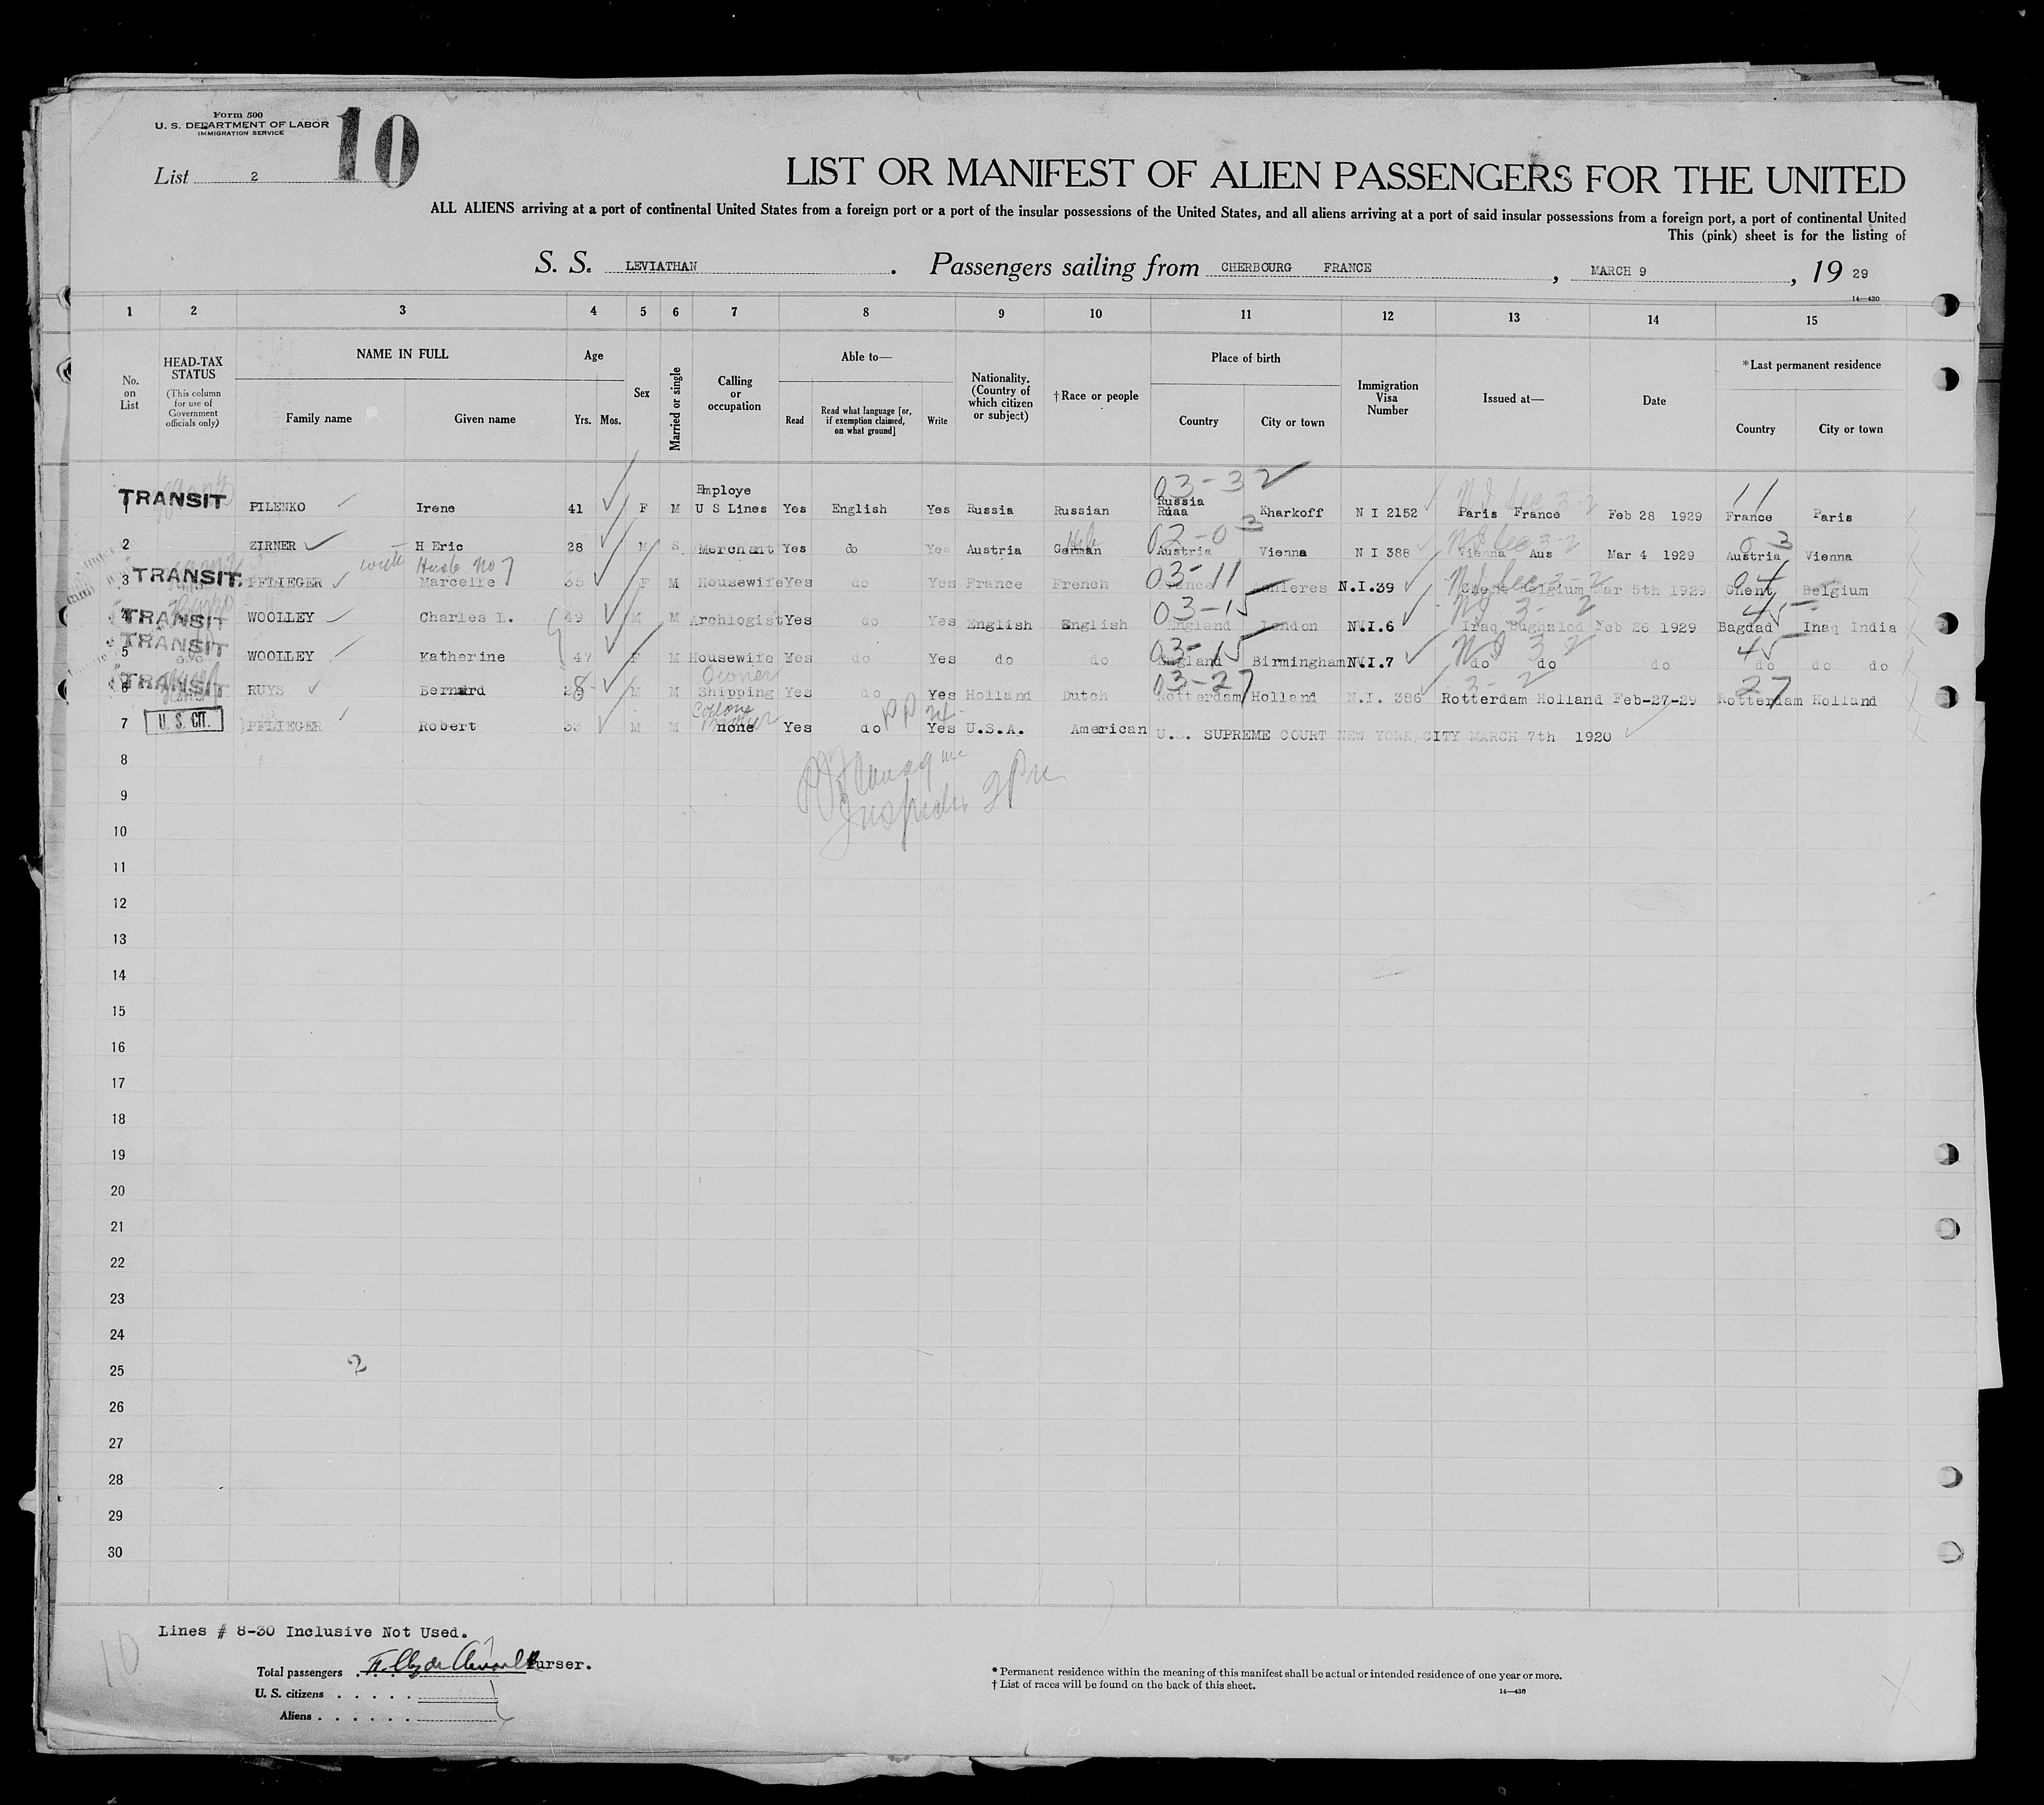 Form 500
U. S. DEPARTMENT OF LABOR
IMMIGRATION SERVICE
10
List 2
LIST OR MANIFEST OF ALIEN PASSENGERS FOR THE UNITED
ALL ALIENS arriving at a port of continental United States from a foreign port or a port of the insular possessions of the United States, and all aliens arriving at a port of said insular possessions from a foreign port, a port of continental United
This (pink) sheet is for the listing of
S. S. LEVIATHAN . Passengers sailing from CHERBOURG FRANCE , MARCH 9 , 19 29
14—430
1 2 3 4 5 6 7 8 9 10 11 12 13 14 15
No. on List
HEAD-TAX STATUS
(This column for use of Government officials only)
NAME IN FULL
Family name
Given name
Age
Yrs. Mos.
Sex
Married or single
Calling or occupation
Able to—
Read
Read what language [or, if exemption claimed, on what ground]
Write
Nationality. (Country of which citizen or subject)
†Race or people
Place of birth
Country
City or town
Immigration Visa Number
Issued at—
Date
*Last permanent residence
Country
City or town
03-32
1 TRANSIT PILENKO Irene 41 F M Employe U S Lines Yes English Yes Russia Russian Russia Ruaa Kharkoff N I 2152 Paris France Feb 28 1929 11 France Paris
2 ZIRNER H Eric 28 M S Merchant Yes do Yes Austria German 03-03 Austria Vienna N I 388 Vienna Aus Mar 4 1929 03 Austria Vienna
with Husb. No 7
3 TRANSIT PFLIEGER Marcelle 35 F M Housewife Yes do Yes France French 03-11 N.I.39 Ghent Belgium Mar 5th 1929 04 Ghent Belgium
4 TRANSIT WOOLLEY Charles L. 49 M M Archlogist Yes do Yes English English 03-15 England London NV.I.6 Iraq Bughalod Feb 26 1929 45 Bagdad Iraq India
5 TRANSIT WOOLLEY Katherine 47 F M Housewife Yes do Yes do do 03-15 England Birmingham NV.I.7 do do do 45 do do do
Owner
6 TRANSIT RUYS Bernard 28 M M Shipping Yes do Yes Holland Dutch 03-27 Rotterdam Holland N.I. 386 3-2 Rotterdam Holland Feb-27-29 27 Rotterdam Holland
7 U. S. CIT. PFLIEGER Robert 33 M M none Yes do Yes U.S.A. American U.S. SUPREME COURT NEW YORK CITY MARCH 7th 1920
8
9
Inspector
10
11
12
13
14
15
16
17
18
19
20
21
22
23
24
2
25
26
27
28
29
30
Lines # 8-30 Inclusive Not Used.
10
Total passengers Purser.
U. S. citizens
Aliens
* Permanent residence within the meaning of this manifest shall be actual or intended residence of one year or more.
† List of races will be found on the back of this sheet.
14—430